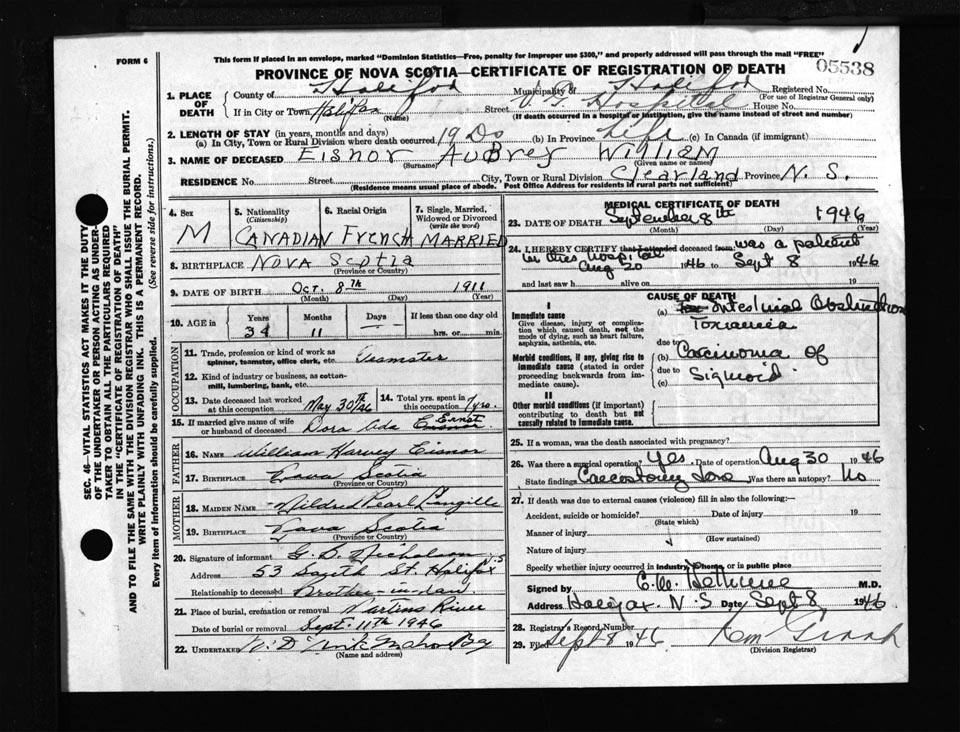 FORM 6
This form if placed in an envelope, marked "Dominion Statistics—Free, penalty for improper use $300," and properly addressed will pass through the mail "FREE"
PROVINCE OF NOVA SCOTIA—CERTIFICATE OF REGISTRATION OF DEATH
05538
1. PLACE OF DEATH
County of Halifax Municipality of Halifax Registered No.
(For use of Registrar General only)
If in City or Town Halifax Street V. G. Hospital House No.
(Name) (If death occurred in a hospital or institution, give the name instead of street and number)
2. LENGTH OF STAY (in years, months and days)
(a) In City, Town or Rural Division where death occurred 19 Ds (b) In Province Life (c) In Canada (if immigrant)
3. NAME OF DECEASED Eisnor Aubrey William
(Surname) (Given name or names)
RESIDENCE No. Street City, Town or Rural Division Clearland Province N. S.
(Residence means usual place of abode. Post Office Address for residents in rural parts not sufficient)
4. Sex M
5. Nationality (Citizenship) CANADIAN
6. Racial Origin French
7. Single, Married, Widowed or Divorced (write the word) MARRIED
8. BIRTHPLACE Nova Scotia
(Province or Country)
9. DATE OF BIRTH Oct. 8th 1911
(Month) (Day) (Year)
10. AGE in Years 34 Months 11 Days — If less than one day old hrs. or min.
OCCUPATION
11. Trade, profession or kind of work as spinner, teamster, office clerk, etc. Teamster
12. Kind of industry or business, as cotton-mill, lumbering, bank, etc.
13. Date deceased last worked at this occupation May 30th/46
14. Total yrs. spent in this occupation 7 yrs.
15. If married give name of wife or husband of deceased Dora Ada Ernst
FATHER
16. Name William Harvey Eisnor
17. Birthplace Nova Scotia
(Province or Country)
MOTHER
18. Maiden Name Mildred Pearl Langille
19. Birthplace Nova Scotia
(Province or Country)
20. Signature of informant G. S. Nicholson
Address 53 St. Halifax
Relationship to deceased Brother-in-law
21. Place of burial, cremation or removal Martins River
Date of burial or removal Sept. 11th 1946
22. Undertaker
(Name and address)
MEDICAL CERTIFICATE OF DEATH
23. DATE OF DEATH September 8th 1946
(Month) (Day) (Year)
24. I HEREBY CERTIFY that I attended deceased from was a patient
in this hospital
Aug 20 1946 to Sept 8 1946
and last saw h alive on 19
CAUSE OF DEATH
I
Immediate cause
Give disease, injury or complication which caused death, not the mode of dying, such as heart failure, asphyxia, asthenia, etc.
(a) Intestinal Obstruction
Toxaemia
due to
Morbid conditions, if any, giving rise to immediate cause (stated in order proceeding backwards from immediate cause).
(b) Carcinoma of
due to Sigmoid.
(c)
II
Other morbid conditions (if important) contributing to death but not causally related to immediate cause.
25. If a woman, was the death associated with pregnancy?
26. Was there a surgical operation? Yes. Date of operation Aug 30 1946
State findings Caecostomy Was there an autopsy? No
27. If death was due to external causes (violence) fill in also the following:—
Accident, suicide or homicide? Date of injury 19
(State which)
Manner of injury
(How sustained)
Nature of injury
Specify whether injury occurred in Industry, home, or in public place
Signed by C. W. Bethune M.D.
Address Halifax. N. S. Date Sept 8 1946
28. Registrar's Record Number
29. Filed Sept 8 1946
(Division Registrar)
SEC. 46—VITAL STATISTICS ACT MAKES IT THE DUTY OF THE UNDERTAKER OR PERSON ACTING AS UNDERTAKER TO OBTAIN ALL THE PARTICULARS REQUIRED IN THE "CERTIFICATE OF REGISTRATION OF DEATH" AND TO FILE THE SAME WITH THE DIVISION REGISTRAR WHO SHALL ISSUE THE BURIAL PERMIT.
WRITE PLAINLY WITH UNFADING INK. THIS IS A PERMANENT RECORD.
Every item of information should be carefully supplied. (See reverse side for instructions.)